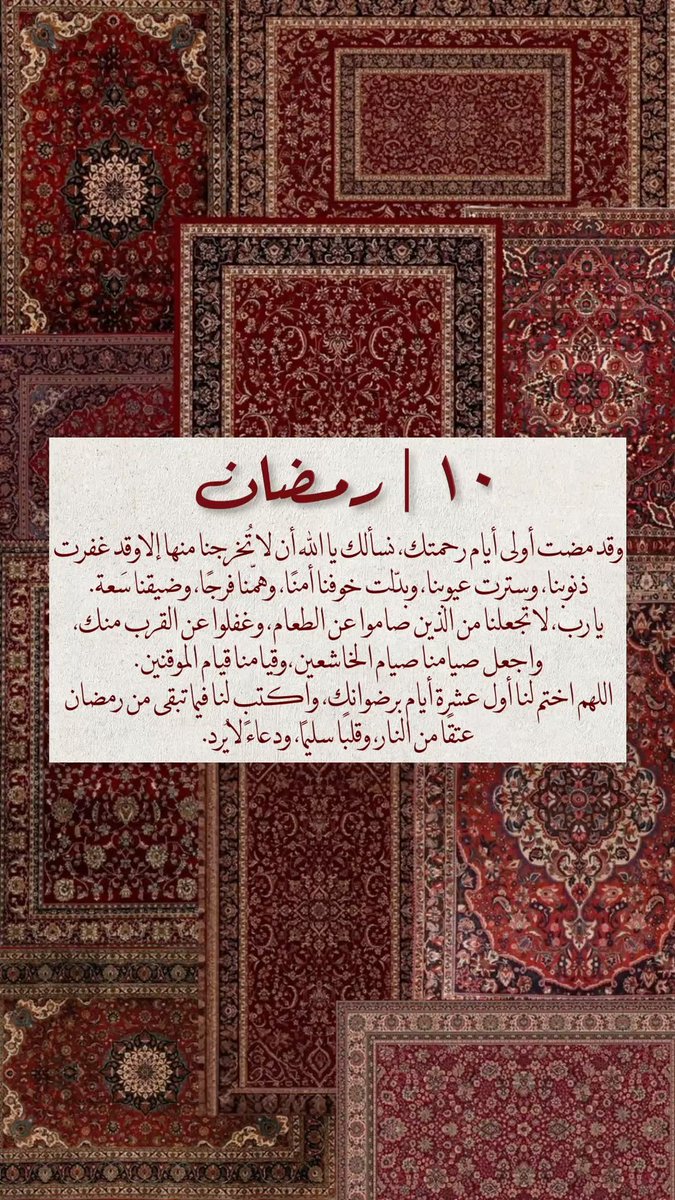 ١٠ | رمضان
وقد مضت أولى أيام رحمتك، نسألك يا الله أن لا تُخرجنا منها إلا وقد غفرت
ذنوبنا، وسترت عيوبنا، وبدّلت خوفنا أمنًا، وهمّنا فرجًا، وضيقنا سَعة.
يا رب، لا تجعلنا من الذين صاموا عن الطعام، وغفلوا عن القرب منك،
واجعل صيامنا صيام الخاشعين، وقيامنا قيام الموقنين.
اللهم اختم لنا أول عشرة أيام برضوانك، واكتب لنا فيما تبقى من رمضان
عتقًا من النار، وقلبًا سليمًا، ودعاءً لا يُرد.